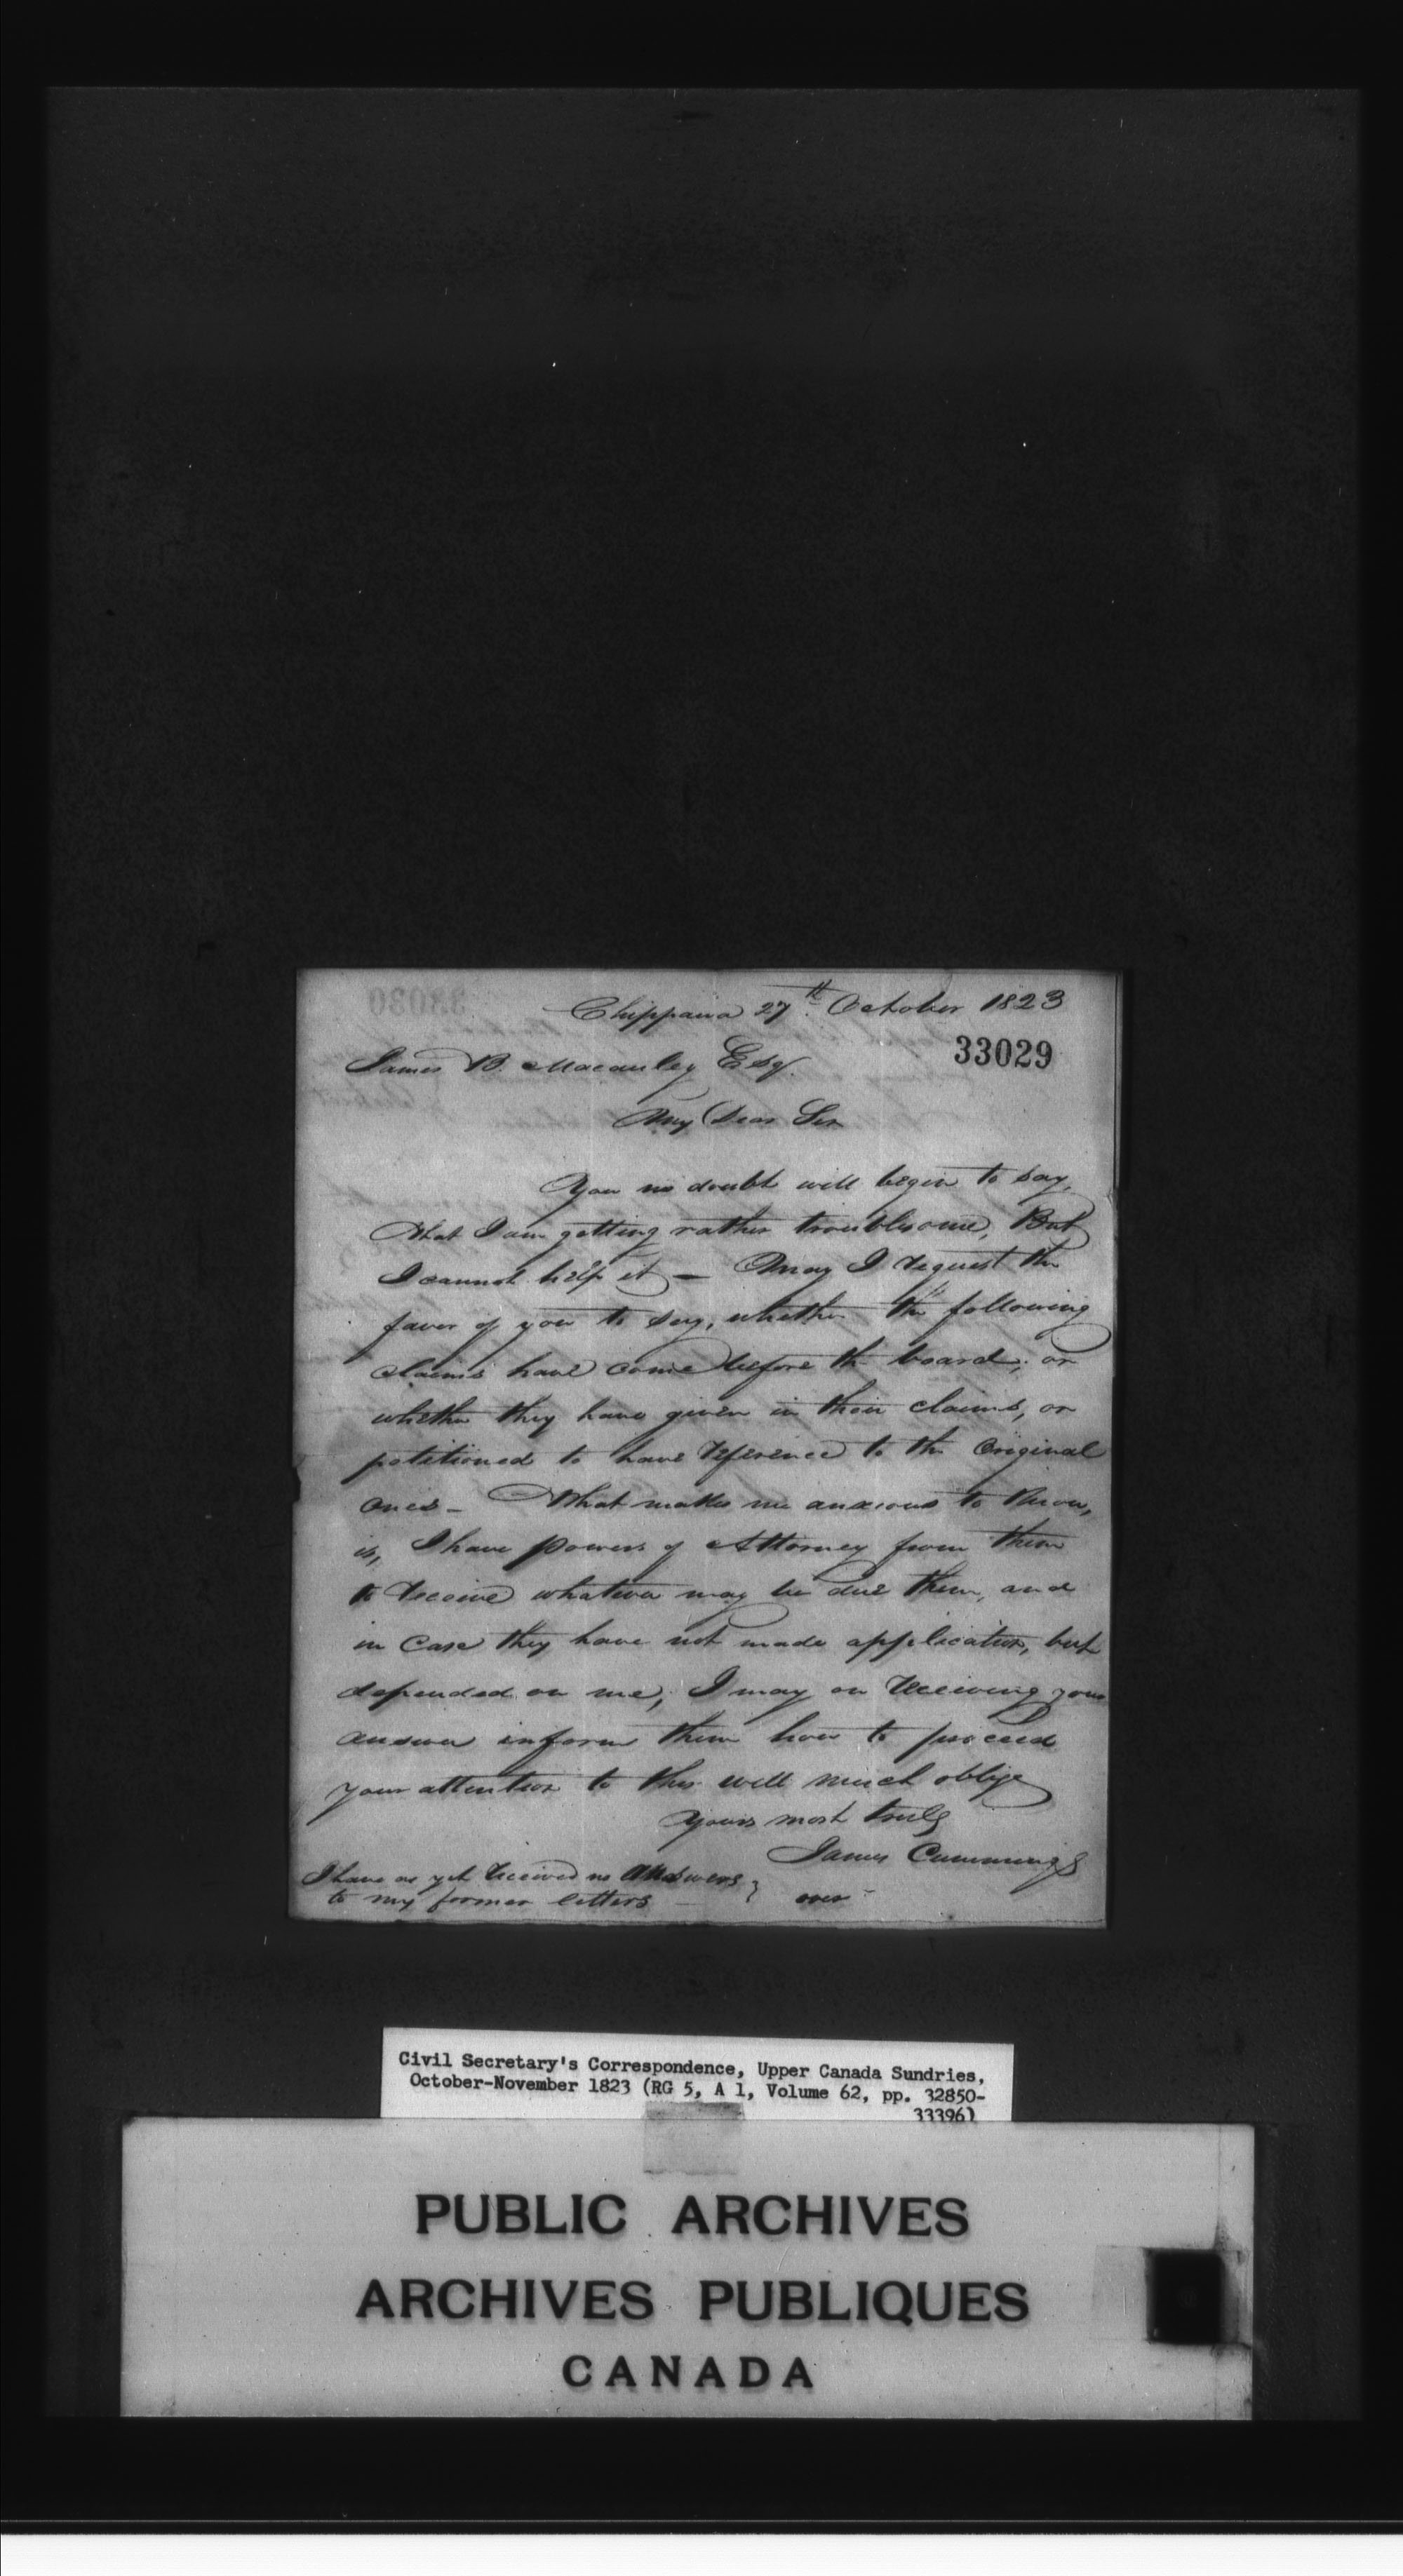 Chippawa 27th October 1823
33029
James B. Macauley Esqr.
My Dear Sir
You no doubt will begin to say,
that I am getting rather troublesome, But
I cannot help it — May I request the
favor of you to say, whether the following
claims have come before the board; or
whether they have given in their claims, or
petitioned to have reference to the Original
ones — What makes me anxious to know,
is, I have powers of Attorney from them
to receive whatever may be due them, and
in case they have not made application, but
depended on me, I may on receiving your
answer inform them how to proceed
your attention to this will much oblige
Yours most truly
James Cummings
I have as yet received no answers
to my former letters —
over
Civil Secretary's Correspondence, Upper Canada Sundries,
October-November 1823 (RG 5, A 1, Volume 62, pp. 32850-
33396)
PUBLIC ARCHIVES
ARCHIVES PUBLIQUES
CANADA